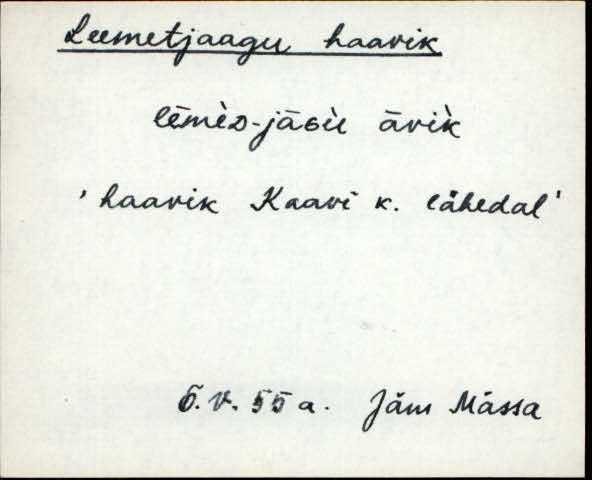 Leemetjaagu haavik
lēmèᴅ-jāɢù āvìk
' haavik Kaavi k. lähedal '
6. V. 55 a. Jäm Mässa